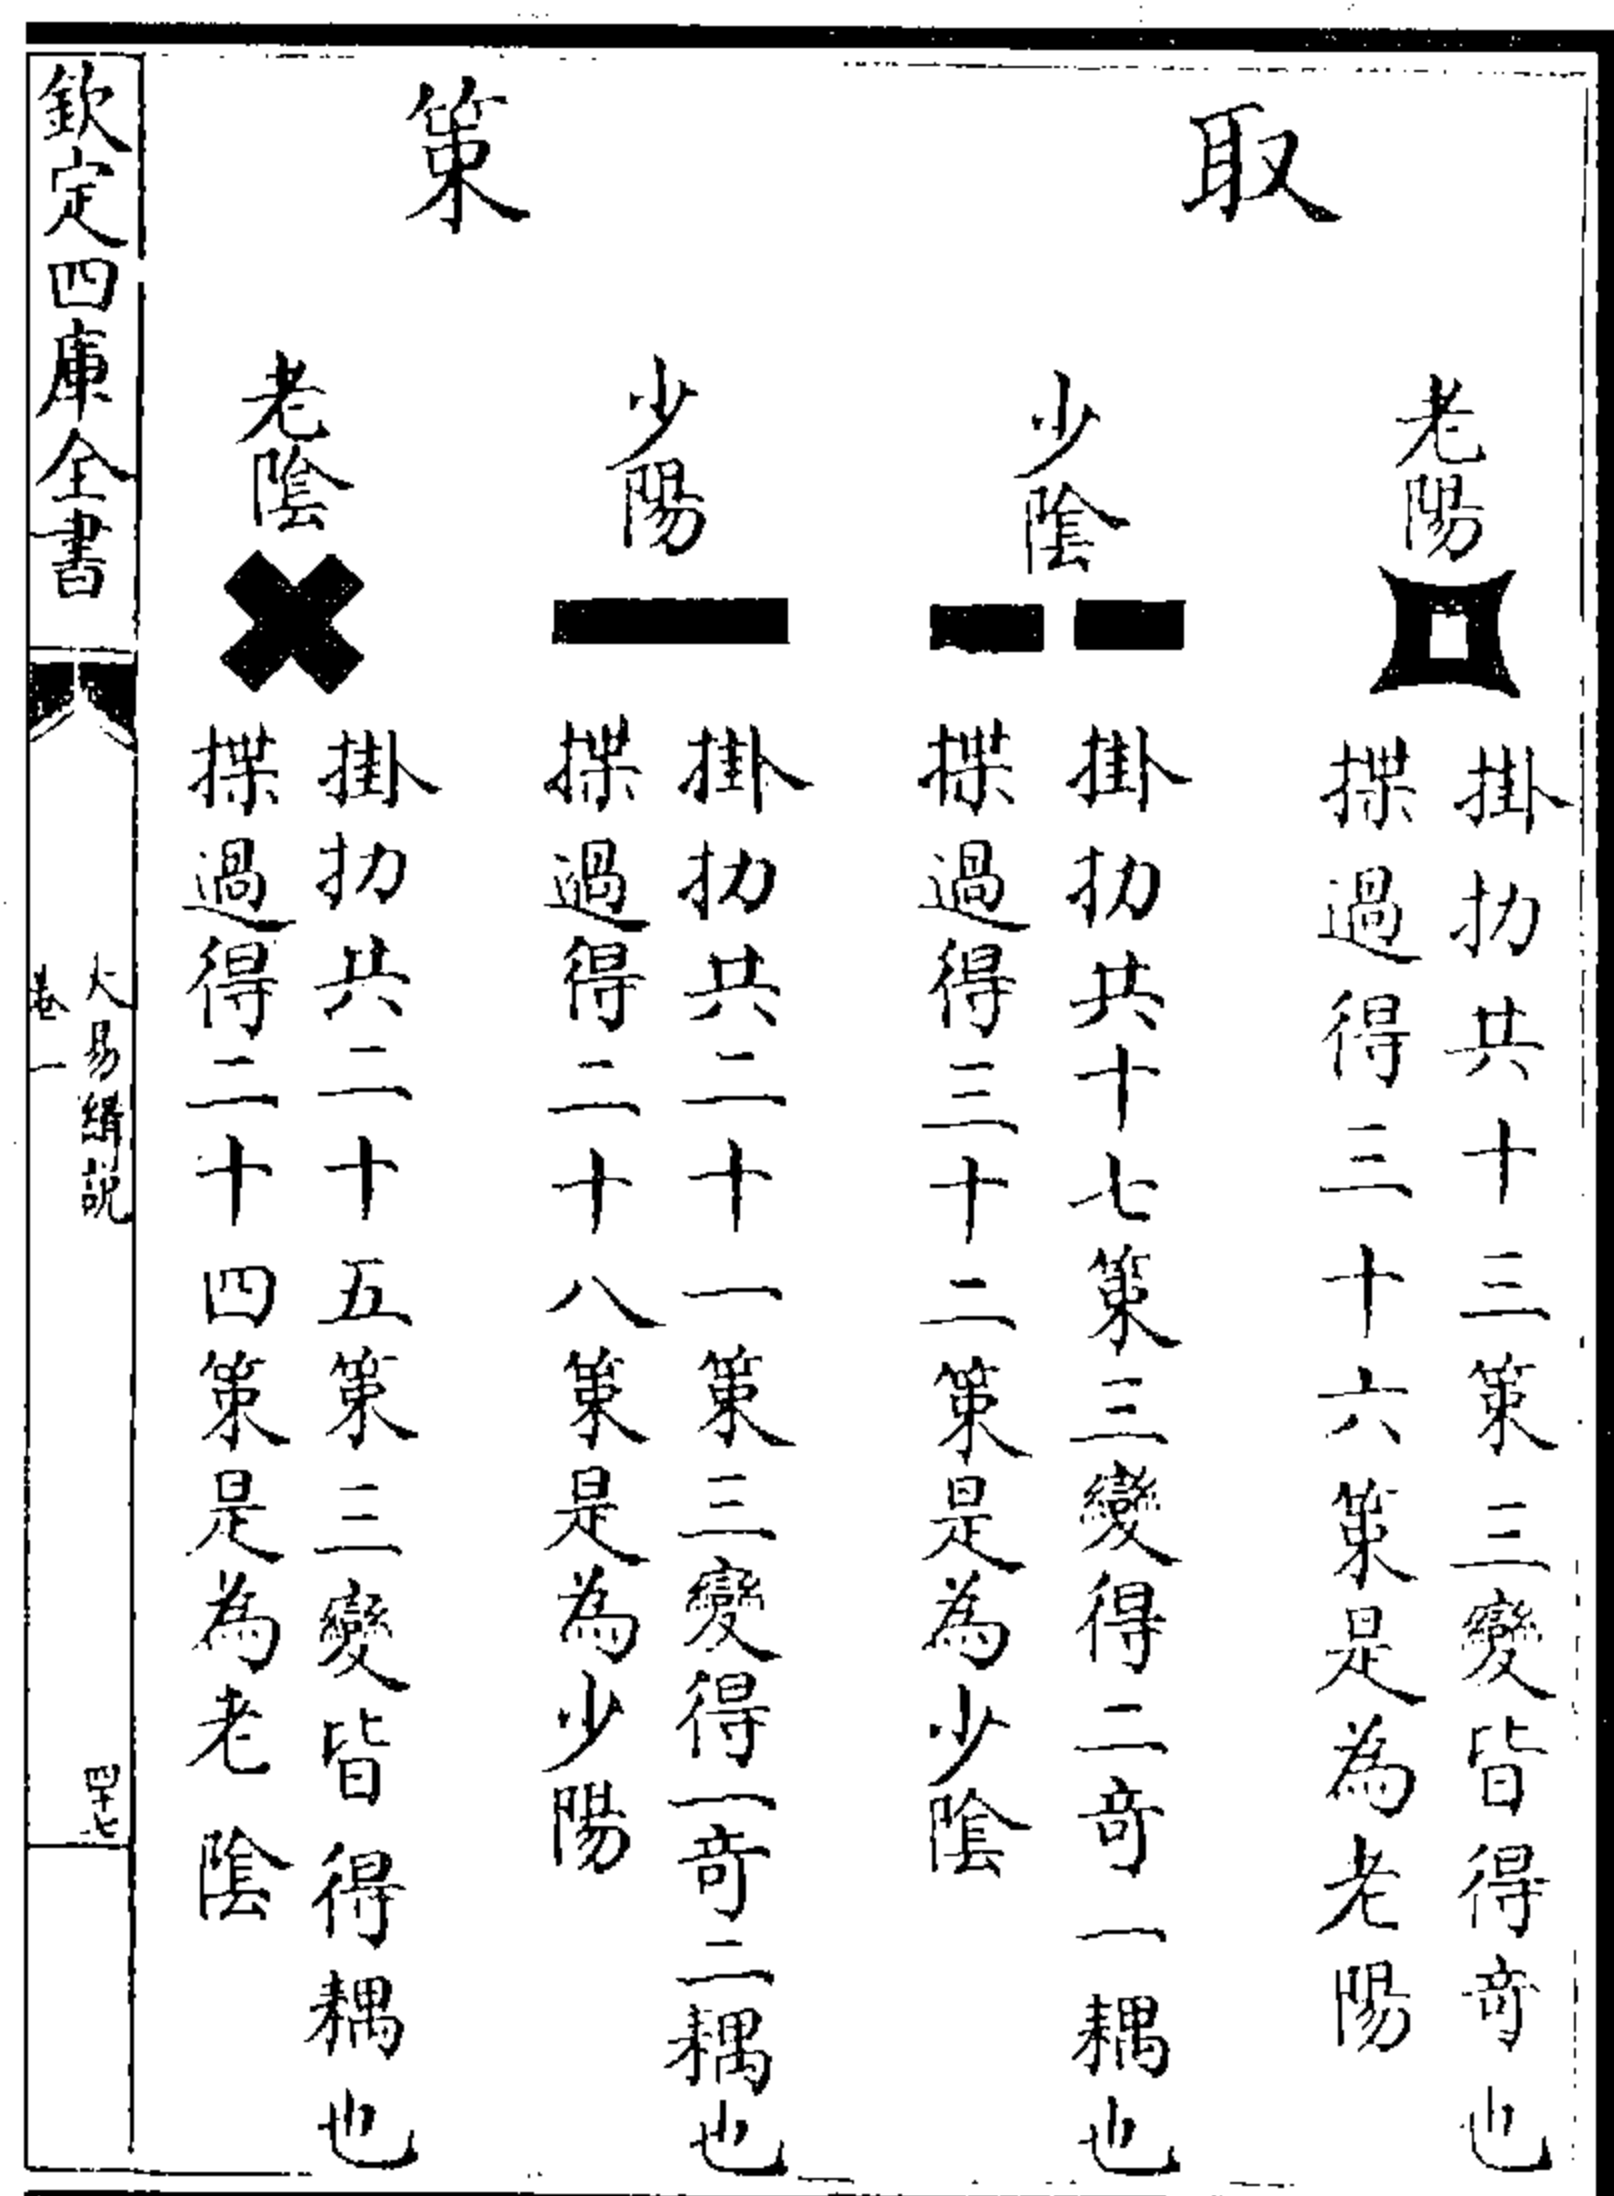 取
老陽
掛扐共十三策三變皆得竒也
揲過得三十六策是為老陽
少陰
掛扐共十七策三變得二竒一耦也
揲過得三十二策是為少陰
策
少陽
掛扐共二十一策三變得一竒二耦也
揲過得二十八策是為少陽
老陰
掛扐共二十五策三變皆得耦也
揲過得二十四策是為老陰
欽定四庫全書
大易緝說
卷一
四十七